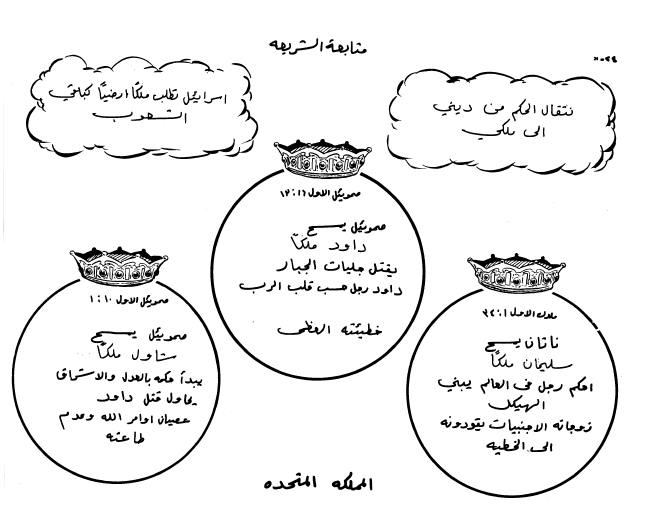 متابعة الشريعه
اسرائيل تطلب ملكًا ارضيًا كباقي
الشعوب
نتقال الحكم من ديني
الى ملكي
صموئيل الاول ١٦: ١٣
صموئيل يمسح
داود ملكًا
يقتل جليات الجبار
داود رجل حسب قلب الرب
خطيئته العظمى
صموئيل الاول ١٠: ١
صموئيل يمسح
شاول ملكًا
يبدأ حكمه بالعدل والاستقامة
يحاول قتل داود
عصيان اوامر الله وعدم
طاعته
ملوك الاول ١: ٣٤
ناثان يمسح
سليمان ملكًا
احكم رجل في العالم يبني
الهيكل
زوجاته الاجنبيات يقودونه
الى الخطيه
المملكه المتحده